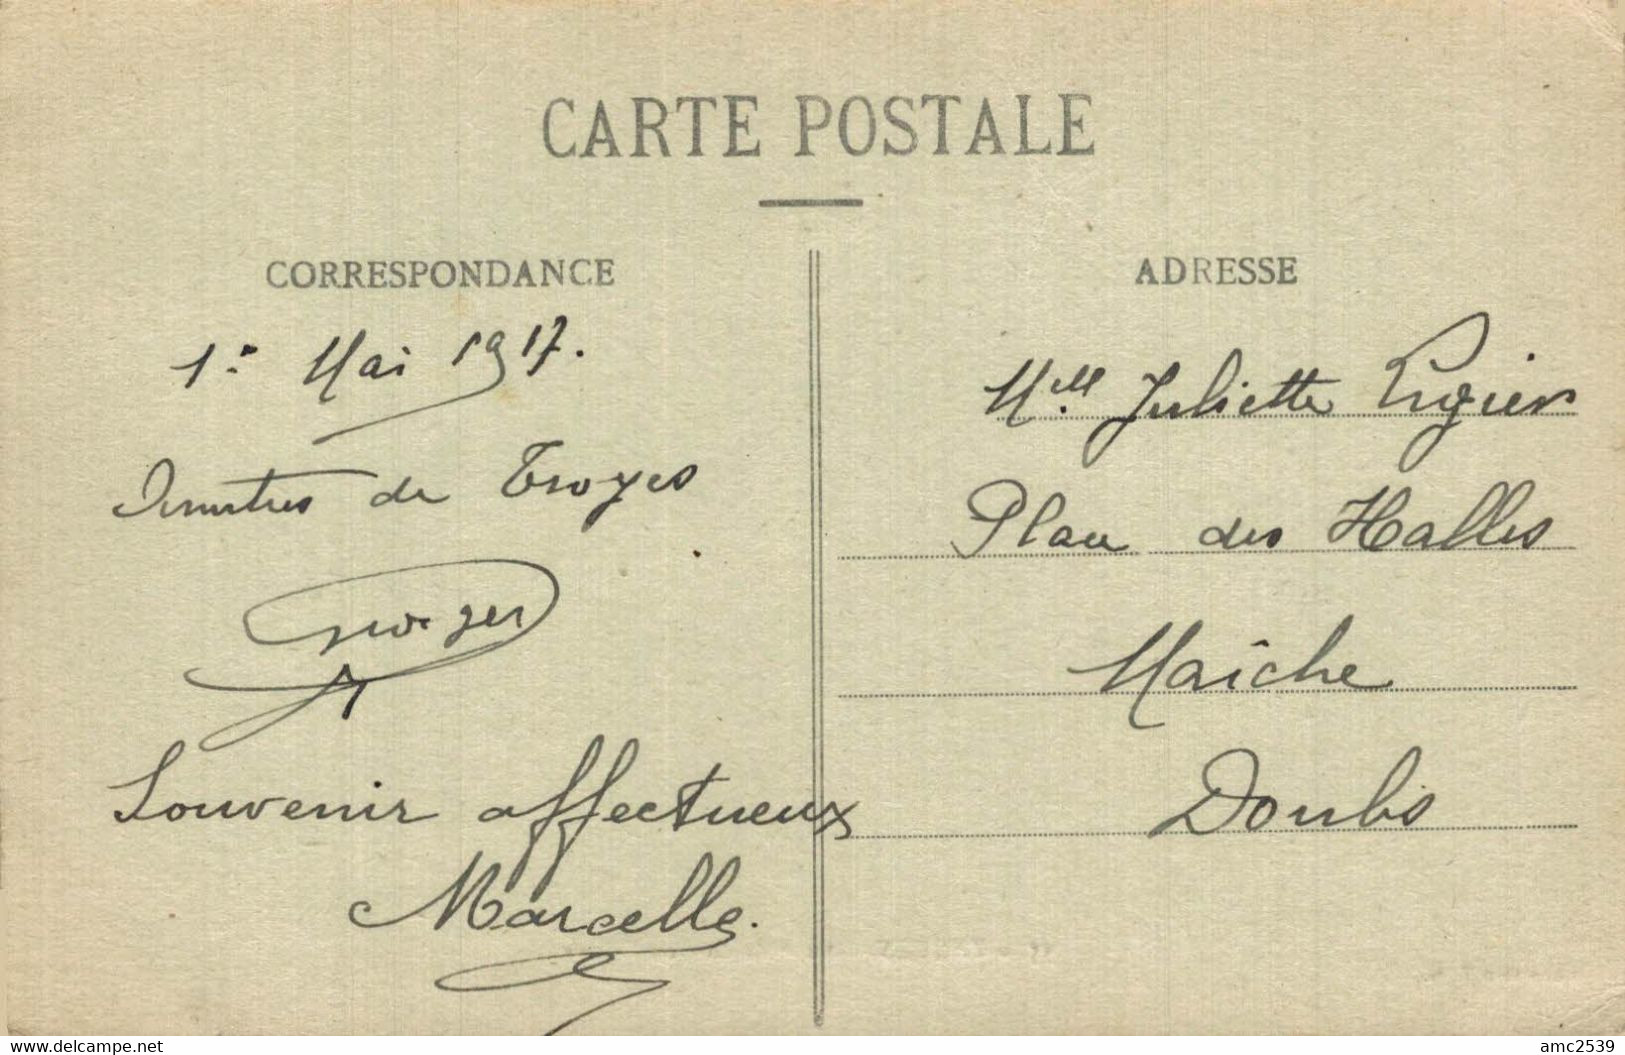 CARTE POSTALE
CORRESPONDANCE
1er Mai 1917.
de Troyes
Souvenir affectueux
Marcelle.
ADRESSE
Mlle Juliette
Place des Halles
Maîche
Doubs
www.delcampe.net
amc2539